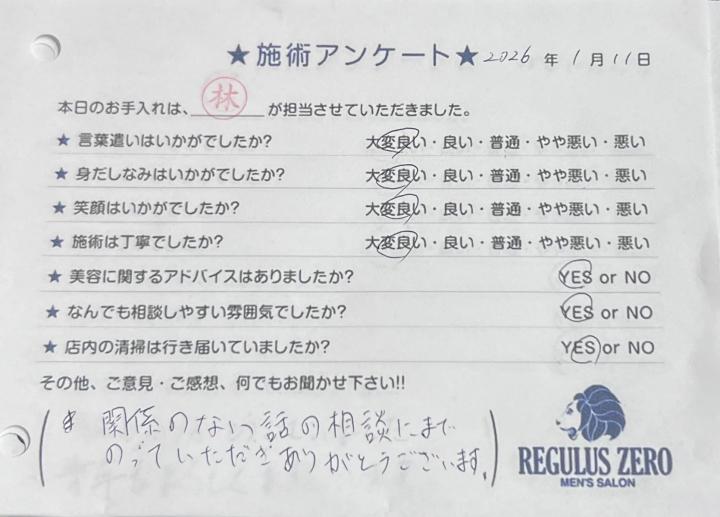 ★施術アンケート★ 2026 年 1 月 11 日
本日のお手入れは、 林 が担当させていただきました。
★ 言葉遣いはいかがでしたか? 大変良い・良い・普通・やや悪い・悪い
★ 身だしなみはいかがでしたか? 大変良い・良い・普通・やや悪い・悪い
★ 笑顔はいかがでしたか? 大変良い・良い・普通・やや悪い・悪い
★ 施術は丁寧でしたか? 大変良い・良い・普通・やや悪い・悪い
★ 美容に関するアドバイスはありましたか? YES or NO
★ なんでも相談しやすい雰囲気でしたか? YES or NO
★ 店内の清掃は行き届いていましたか? YES or NO
その他、ご意見・ご感想、何でもお聞かせ下さい!!
関係のない話の相談にまで
のっていただきありがとうございます。
REGULUS ZERO
MEN'S SALON